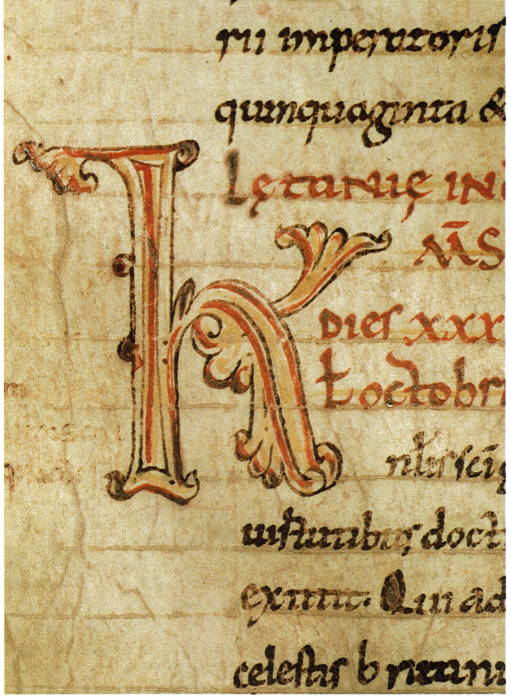 rii imperatoris
quinquaginta &
Lętanię IN
K
M̄S
Dies xxx
octobri
uirtutibus doct
extitit. Qui ad
celestis britanni